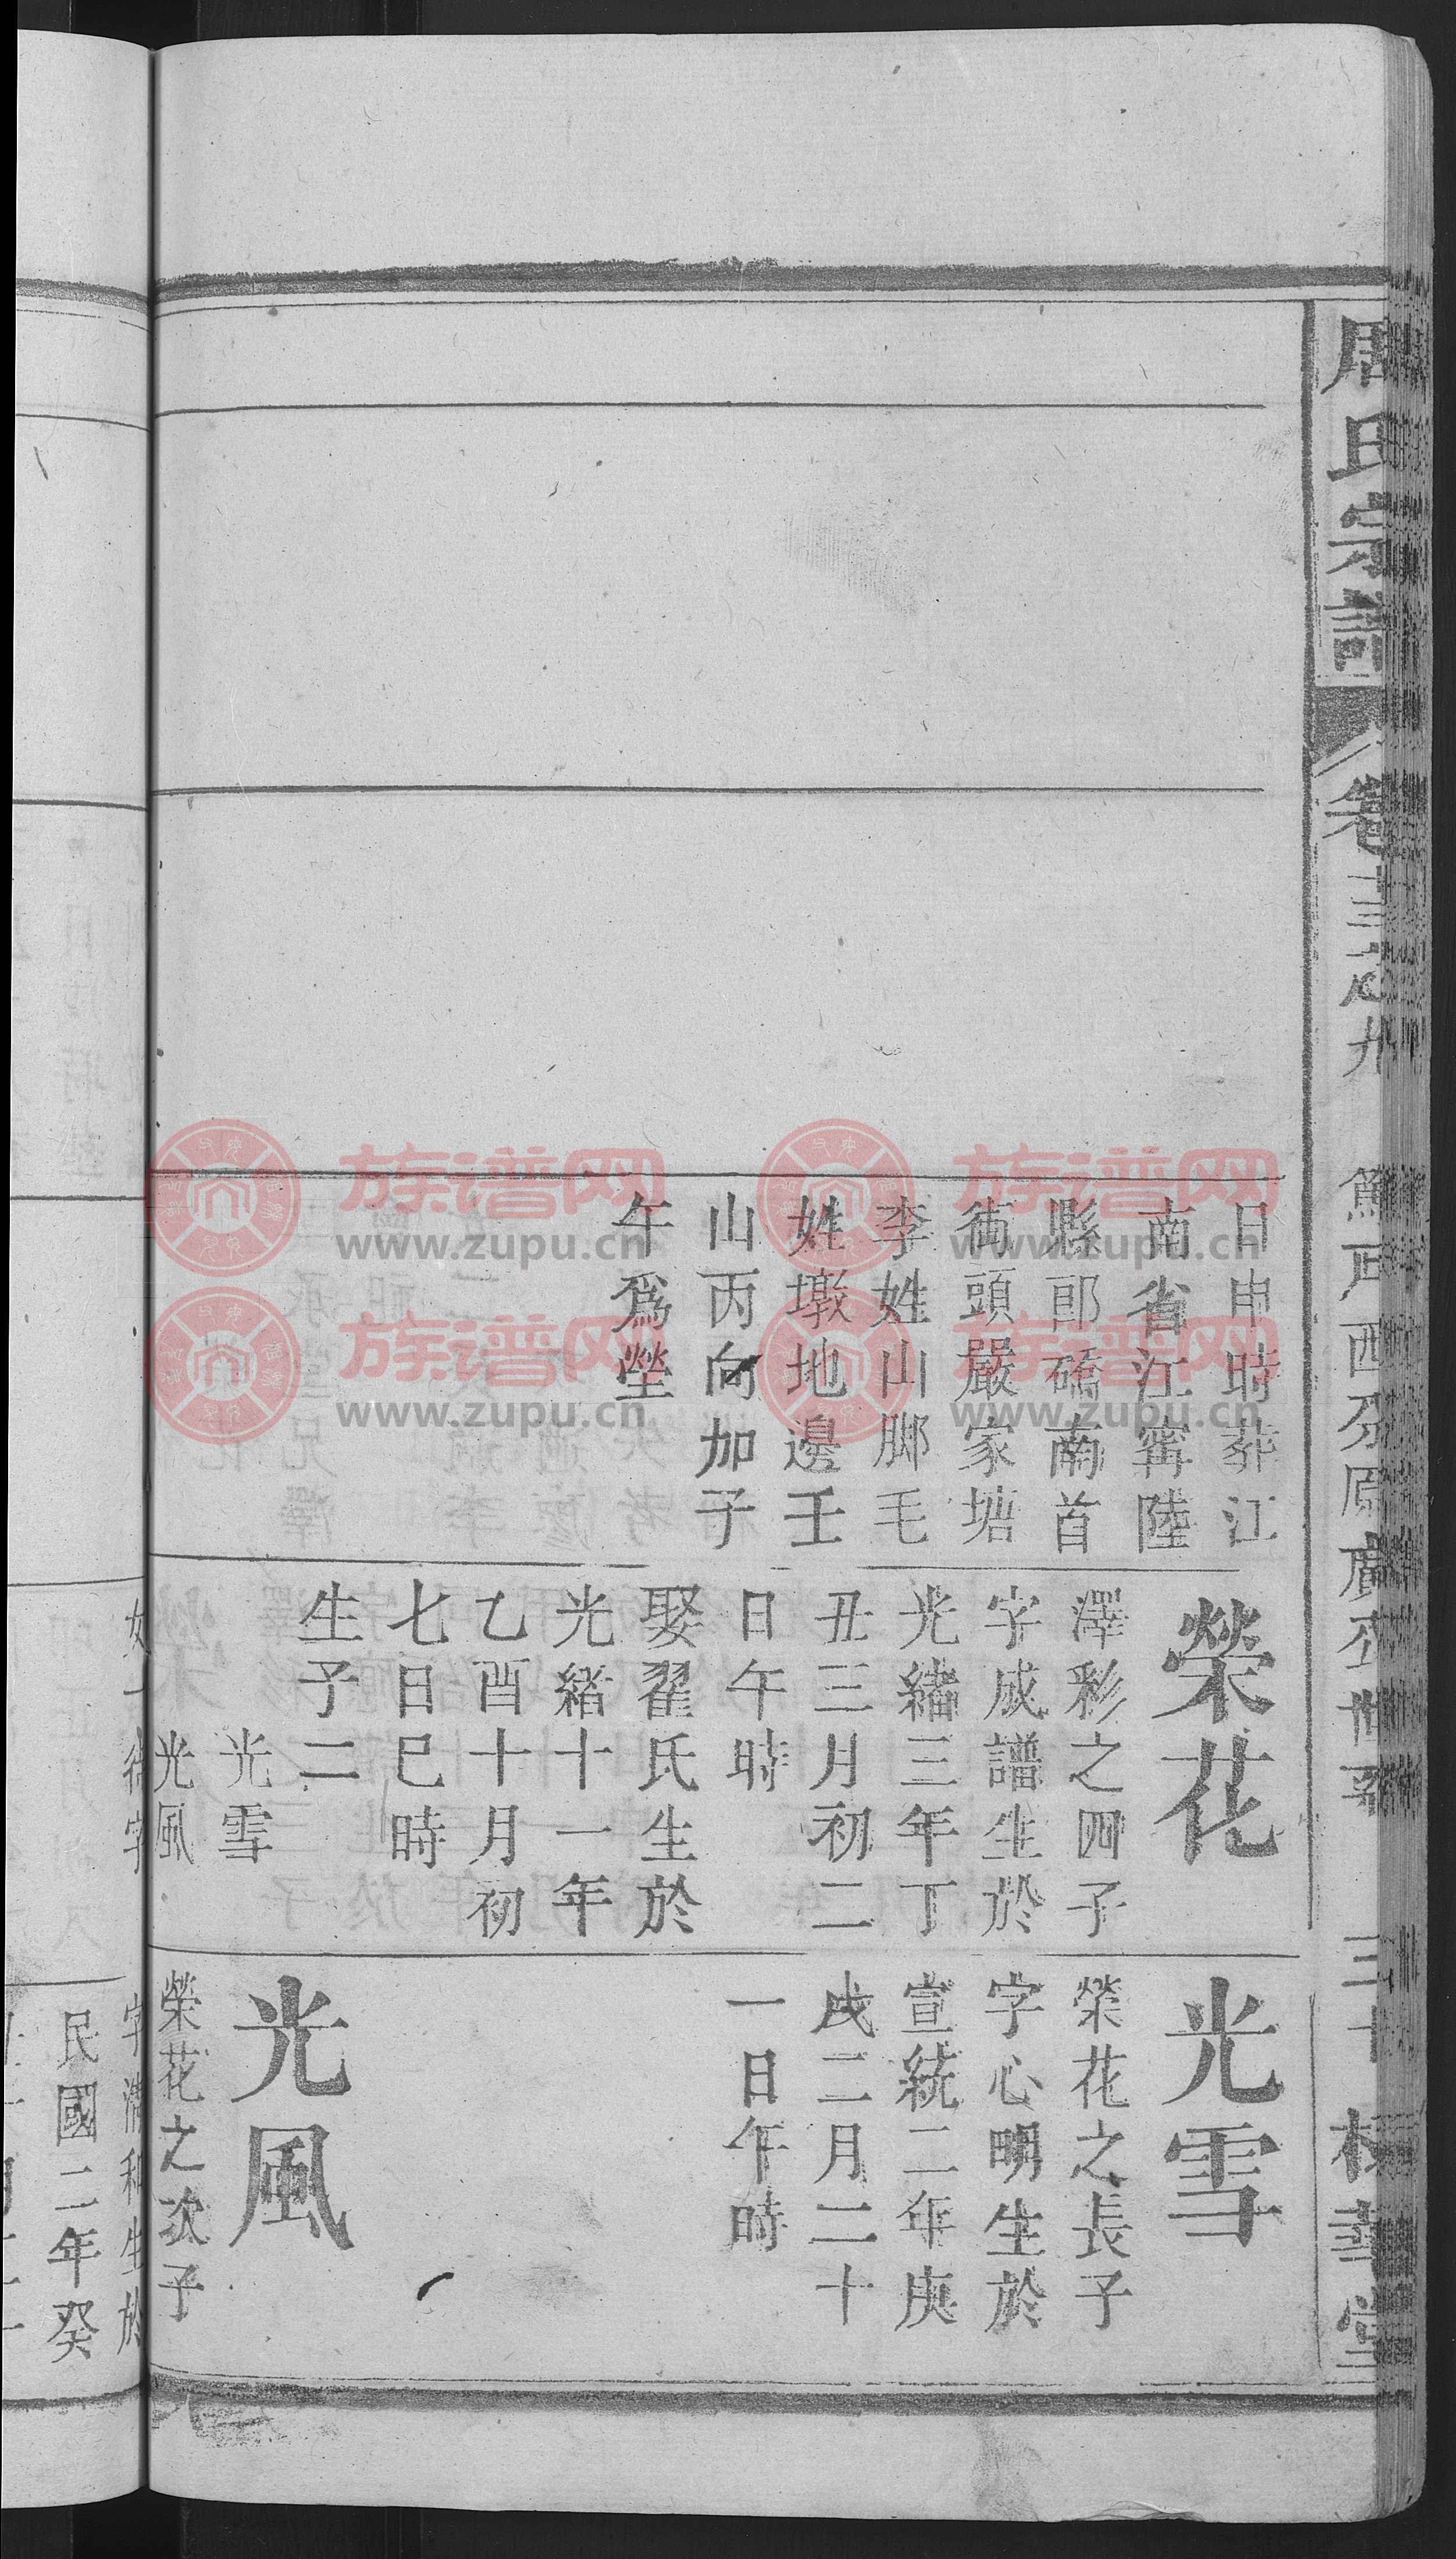 周氏宗譜
卷
日申時葬江
南省江甯陸
縣郎磆南首
街頭嚴家塘
李姓山脚毛
姓墩地邊壬
山丙向加子
午爲塋
榮花
澤彩之四子
字成譜生於
光緒三年丁
丑三月初二
日午時
娶翟氏生於
光緒十一年
乙酉十月初
七日巳時
生子二
光雪
光風
光雪
榮花之長子
字心明生於
宣統二年庚
戌二月二十
一日午時
光風
榮花之次子
民國二年癸
族谱网
www.zupu.cn
族谱网
www.zupu.cn
族谱网
www.zupu.cn
族谱网
www.zupu.cn